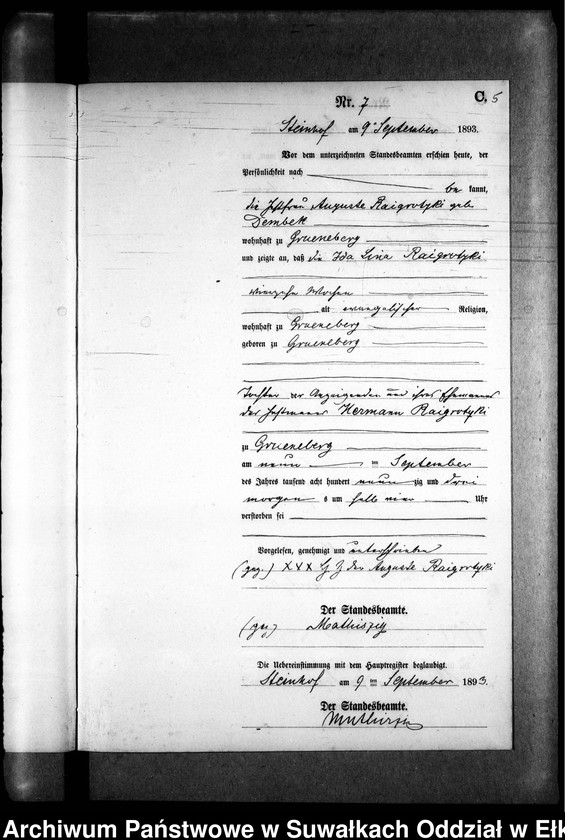 C. 5
Nr. 7
Steinhof am 9ten September 1893.
Vor dem unterzeichneten Standesbeamten erschien heute, der
Persönlichkeit nach
be kannt,
die Instfrau Auguste Raigrotzki geb.
Dembek
wohnhaft zu Grueneberg
und zeigte an, daß die Ida Lina Raigrotzki
vierzehn Wochen
alt evangelischer Religion,
wohnhaft zu Grueneberg
geboren zu Grueneberg
Tochter der Anzeigenden und ihres Ehemannes
des Instmanns Hermann Raigrotzki
zu Grueneberg
am neun ten September
des Jahres tausend acht hundert neun zig und drei
morgen s um halb vier Uhr
verstorben sei
Vorgelesen, genehmigt und unterschrieben
(gez.) XXX der Auguste Raigrotzki
Der Standesbeamte.
(gez)
Die Uebereinstimmung mit dem Hauptregister beglaubigt.
Steinhof am 9 ten September 1893.
Der Standesbeamte.
Archiwum Państwowe w Suwałkach Oddział w Ełk